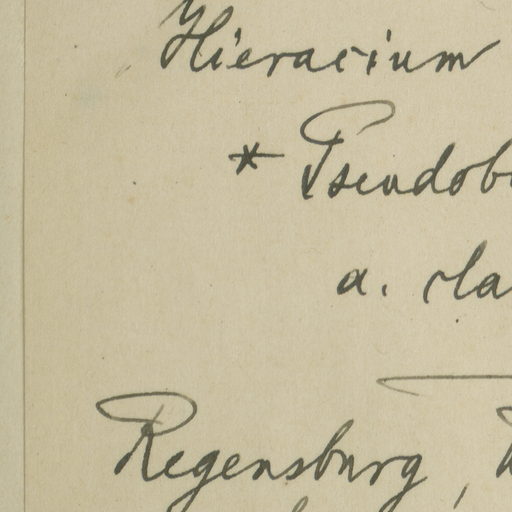 Hieracium
* Pseudob
a.
Regensburg,